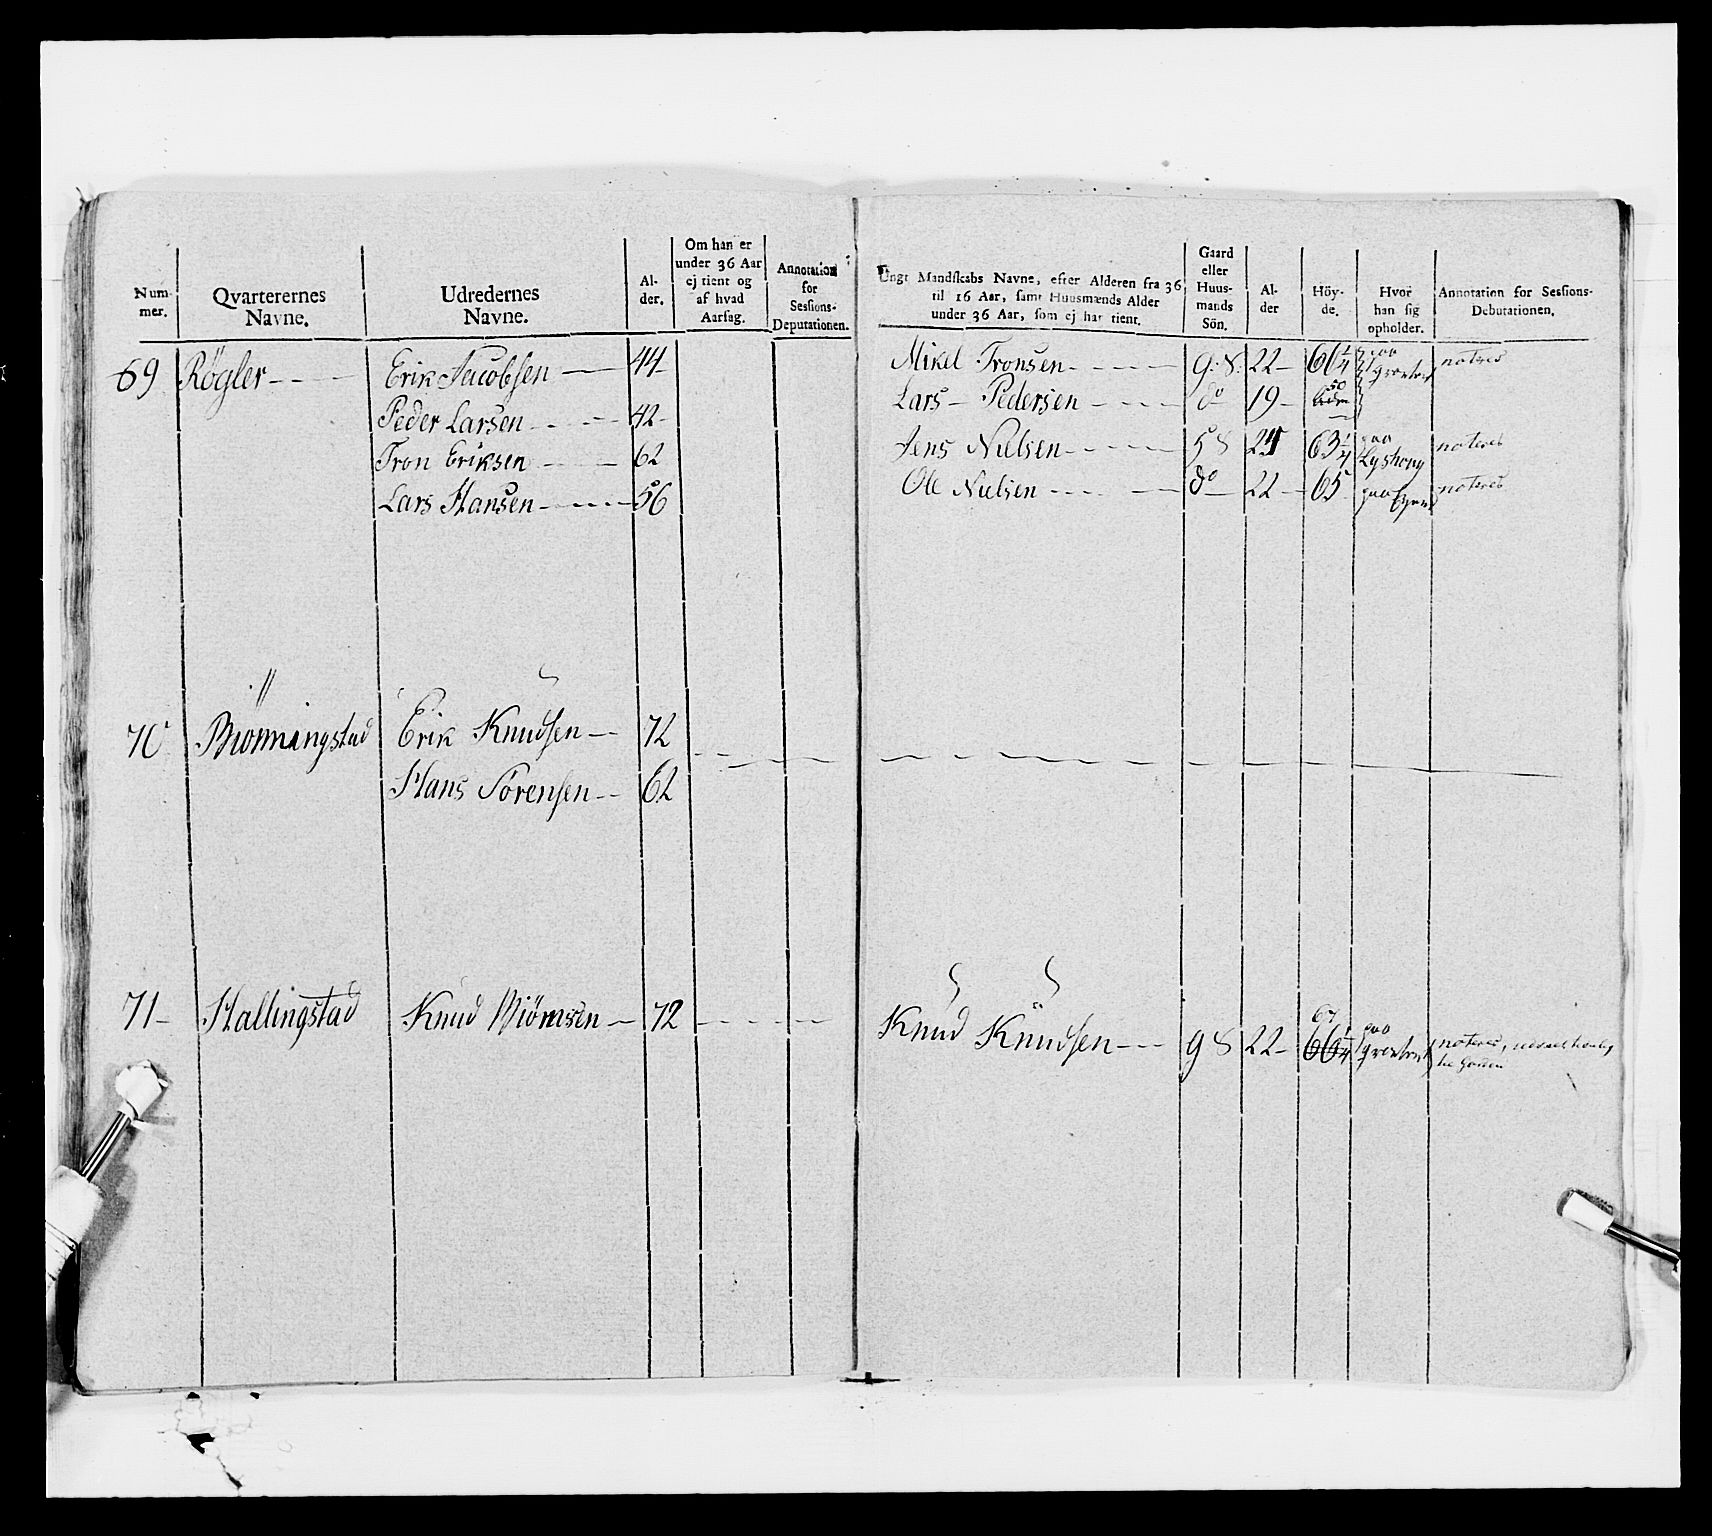 Num-
mer.
Qvarterernes
Navne.
Udredernes
Navne.
Al-
der.
Om han er
under 36 Aar
ej tient og
af hvad
Aarsag.
Annotation
for
Sessions-
Deputationen.
69 Røgler Erik Jacobsen 44
Peder Larsen 42
Tron Eriksen 62
Lars Hansen 56
70 Erik Knudsen 72
Hans Sorensen 62
71 Hallingstad Knud Biörnsen 72
Ungt Mandskabs Navne, efter Alderen fra 36
til 16 Aar, samt Huusmænds Alder
under 36 Aar, som ej har tient.
Gaard
eller
Huus-
mands
Sön.
Al-
der
Höy-
de.
Hvor
han sig
opholder.
Annotation for Sessions-
Debutationen.
Mikel Tronsen G. S. 22 66 1/4 paa noteres
Lars Pedersen do 19
Jens Nielsen 63 1/4 paa noteres
Ole Nielsen do 22 65 paa noteres
Knud Knudsen g S 22 66 1/4 paa noteres,